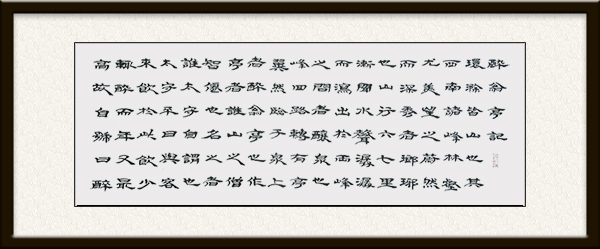 醉翁亭記
環滁皆山也其
西南諸峰林壑
尤美望之蔚然
而深秀者瑯琊
也山行六七里
漸聞水聲潺潺
而瀉出於兩峰
之間者釀泉也
峰回路轉有亭
翼然臨于泉上
者醉翁亭也作
亭者誰山之僧
智僊也名之者
誰太守自謂也
太守曰與客
來飲於此飲少
輒醉而年又最
高故自號曰醉